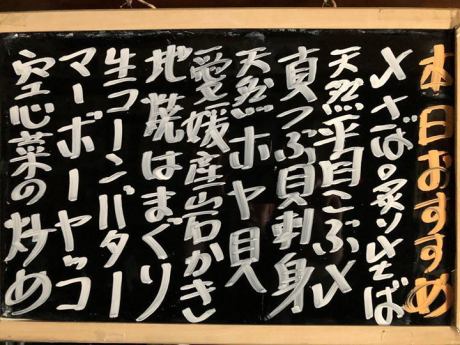 本日おすすめ
〆さば○炙り〆さば
天然平目こぶ〆
真つぶ貝刺身
天然ホヤ貝
愛媛産岩かき
地焼はまぐり
生コーンバター
マーボーヤッコ
空心菜の炒め